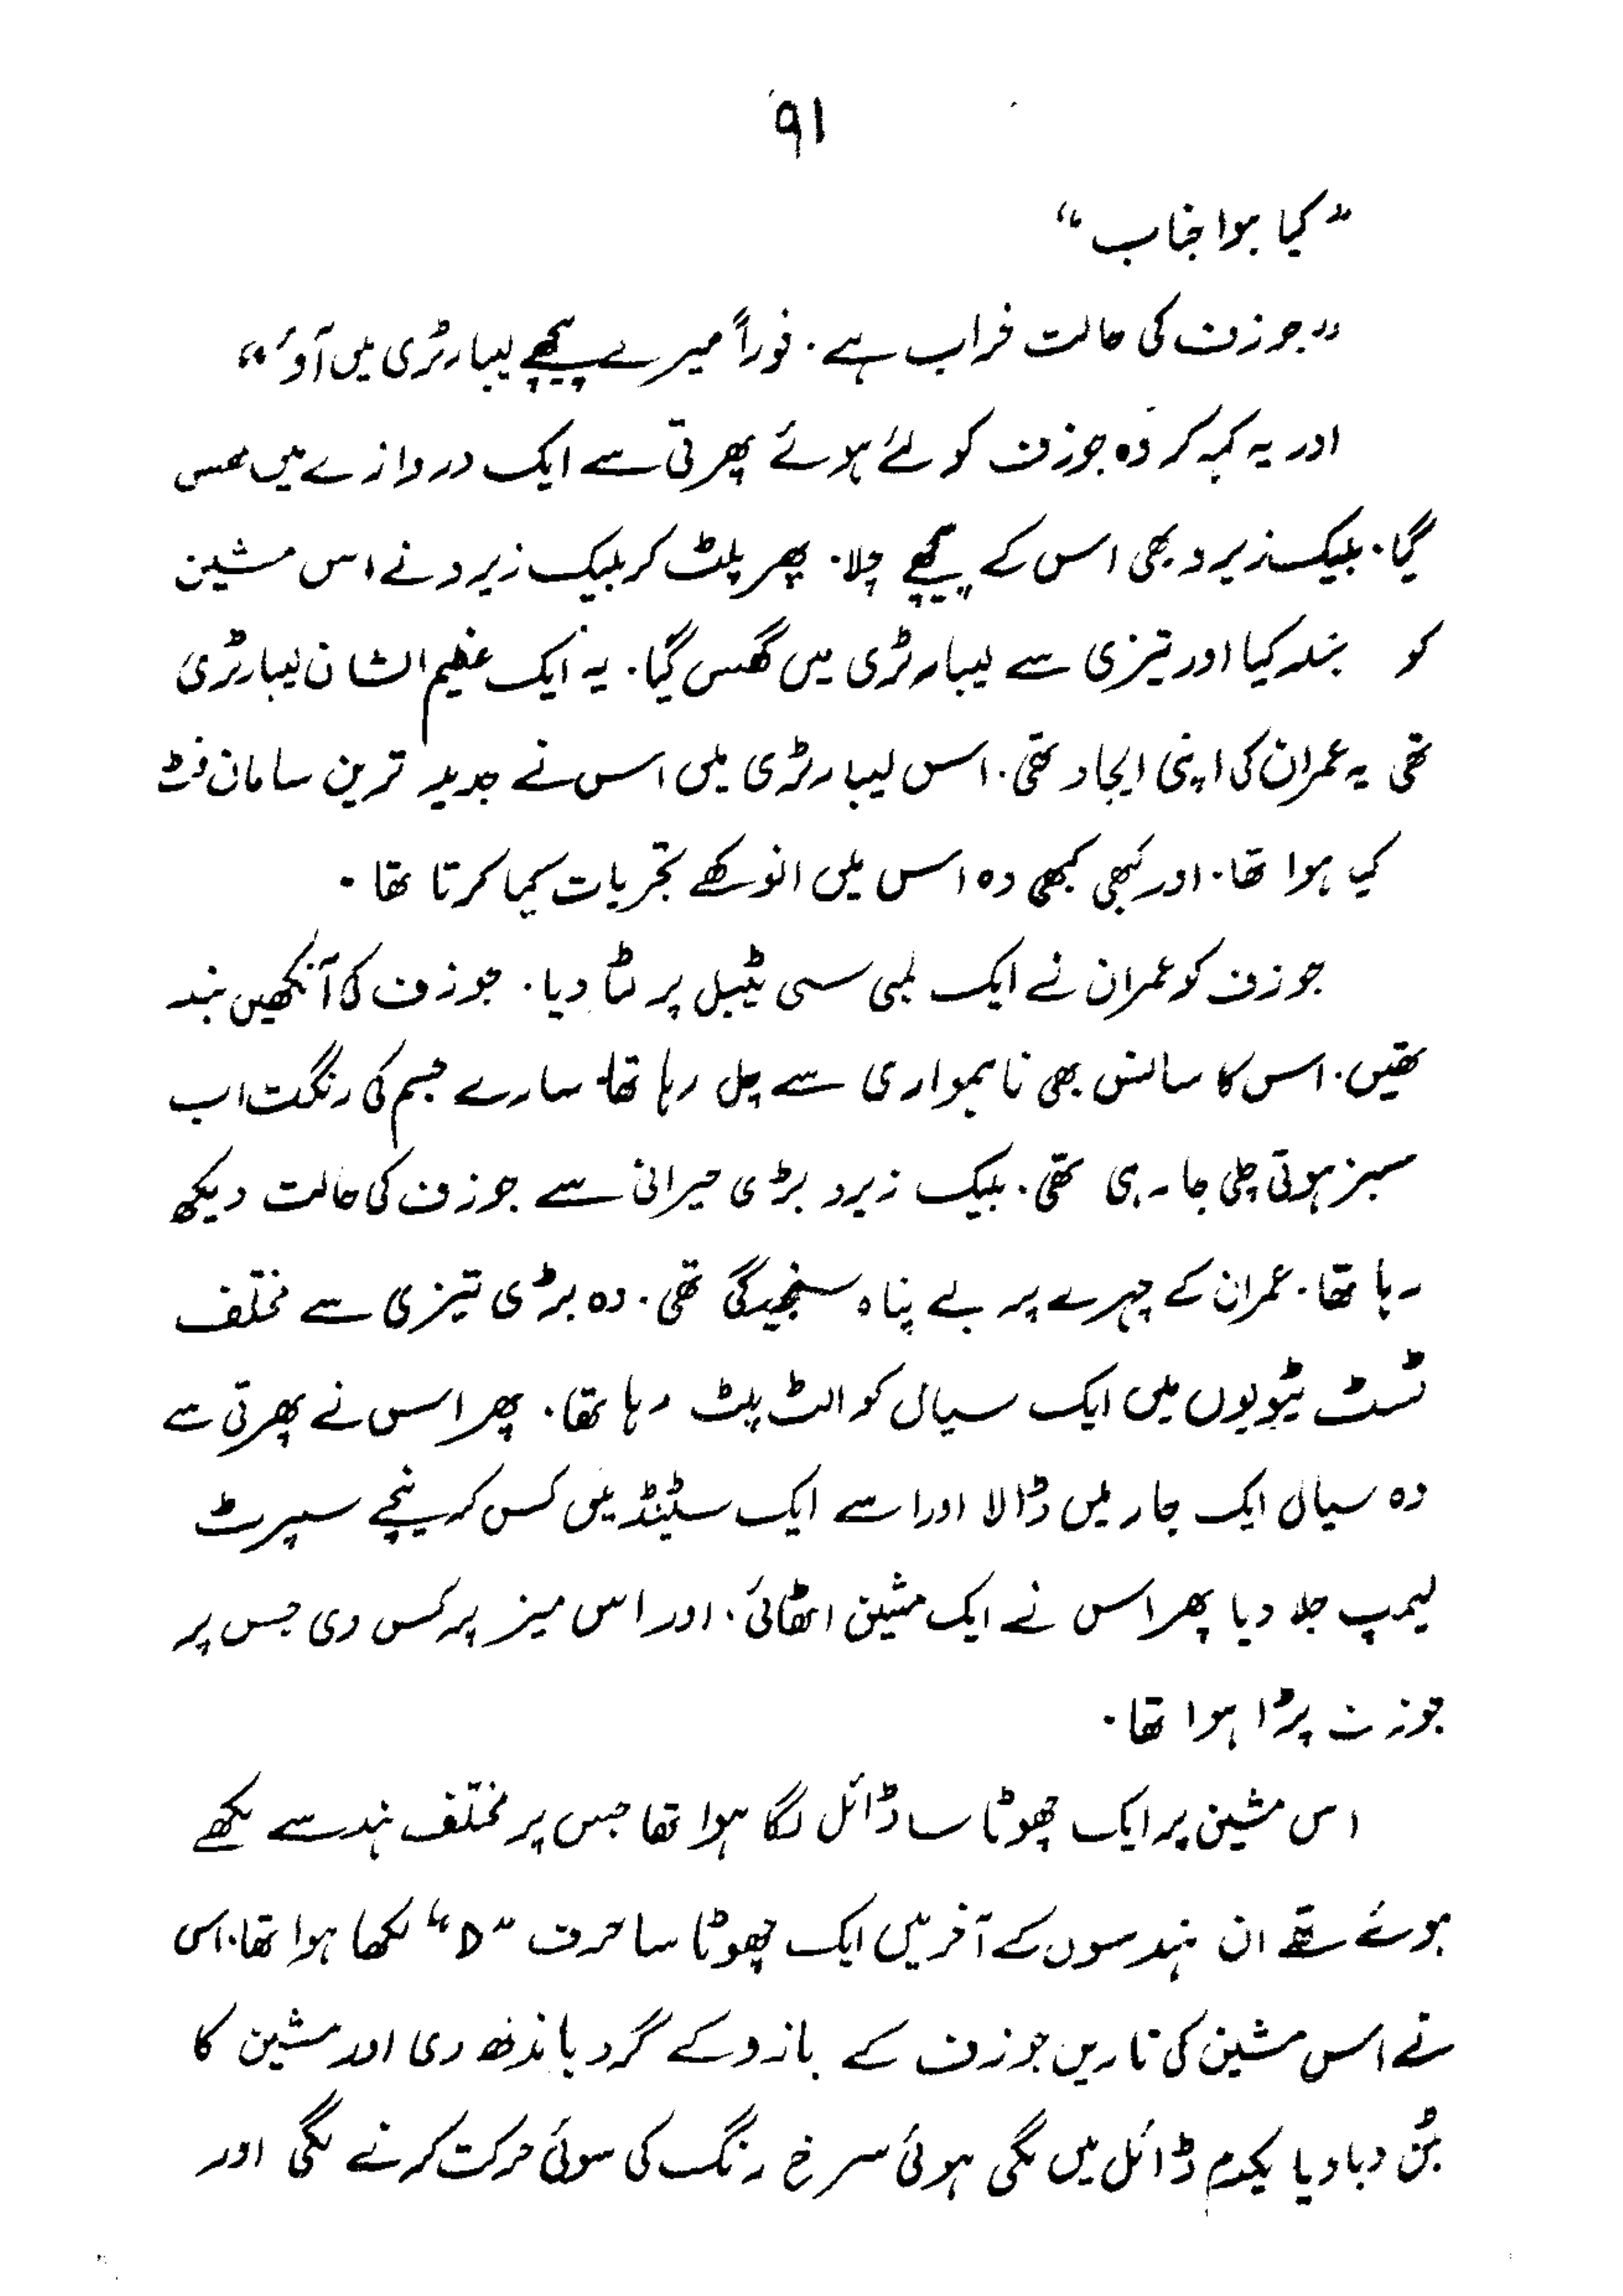 ۹۱
"کیا ہوا جناب"
"جوزف کی حالت خراب ہے۔ فوراً میرے پیچھے لیبارٹری میں آؤ"
اور یہ کہہ کر وہ جوزف کو لئے ہوئے پھرتی سے ایک دروازے میں گھس
گیا۔ بلیک زیرو بھی اس کے پیچھے چلا۔ پھر پلٹ کر بلیک زیرو نے اس مشین
کو بند کیا اور تیزی سے لیبارٹری میں گھس گیا۔ یہ ایک عظیم الشان لیبارٹری
تھی یہ عمران کی اپنی ایجاد تھی۔ اس لیبارٹری میں اس نے جدید ترین سامان فٹ
کیا ہوا تھا۔ اور کبھی کبھی وہ اس میں انوکھے تجربات کیا کرتا تھا۔
جوزف کو عمران نے ایک لمبی سی ٹیبل پر لٹا دیا۔ جوزف کی آنکھیں بند
تھیں۔ اس کا سانس بھی ناہمواری سے چل رہا تھا۔ سارے جسم کی رنگت اب
سبز ہوتی چلی جا رہی تھی۔ بلیک زیرو بڑی حیرانی سے جوزف کی حالت دیکھ
رہا تھا۔ عمران کے چہرے پر بے پناہ سنجیدگی تھی۔ وہ بڑی تیزی سے مختلف
ٹسٹ ٹیوبوں میں ایک سیال کو الٹ پلٹ رہا تھا۔ پھر اس نے پھرتی سے
وہ سیال ایک جار میں ڈالا اور اسے ایک سٹینڈ میں کس کر نیچے سپرٹ
لیمپ جلا دیا پھر اس نے ایک مشین اٹھائی۔ اور اس میز پر کس دی جس پر
جوزف پڑا ہوا تھا۔
اس مشین پر ایک چھوٹا سا ڈائل لگا ہوا تھا جس پر مختلف ہندسے لکھے
ہوئے تھے ان ہندسوں کے آخر میں ایک چھوٹا سا حرف "D" لکھا ہوا تھا۔ اس
نے اس مشین کی تاریں جوزف کے بازو کے گرد باندھ دی اور مشین کا
بٹن دبا دیا یکدم ڈائل میں لگی ہوئی سرخ رنگ کی سوئی حرکت کرنے لگی اور